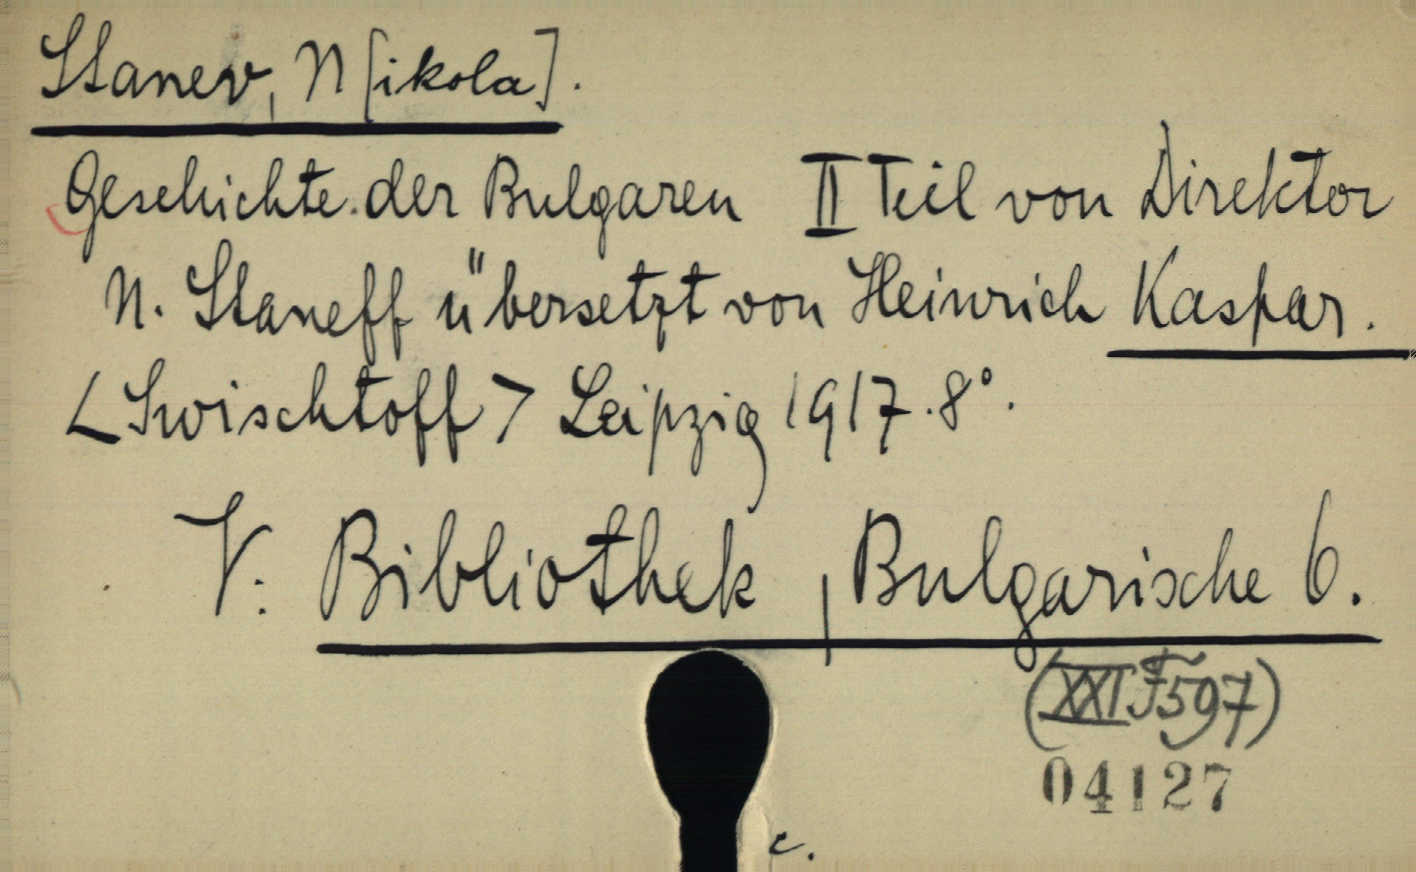 Stanev, N[ikola].
Geschichte der Bulgaren II Teil von Direktor
N. Staneff übersetzt von Heinrich Kaspar.
<Swischtoff> Leipzig 1917. 8°.
V. Bibliothek, Bulgarische 6.
(XXI F597)
04127
c.